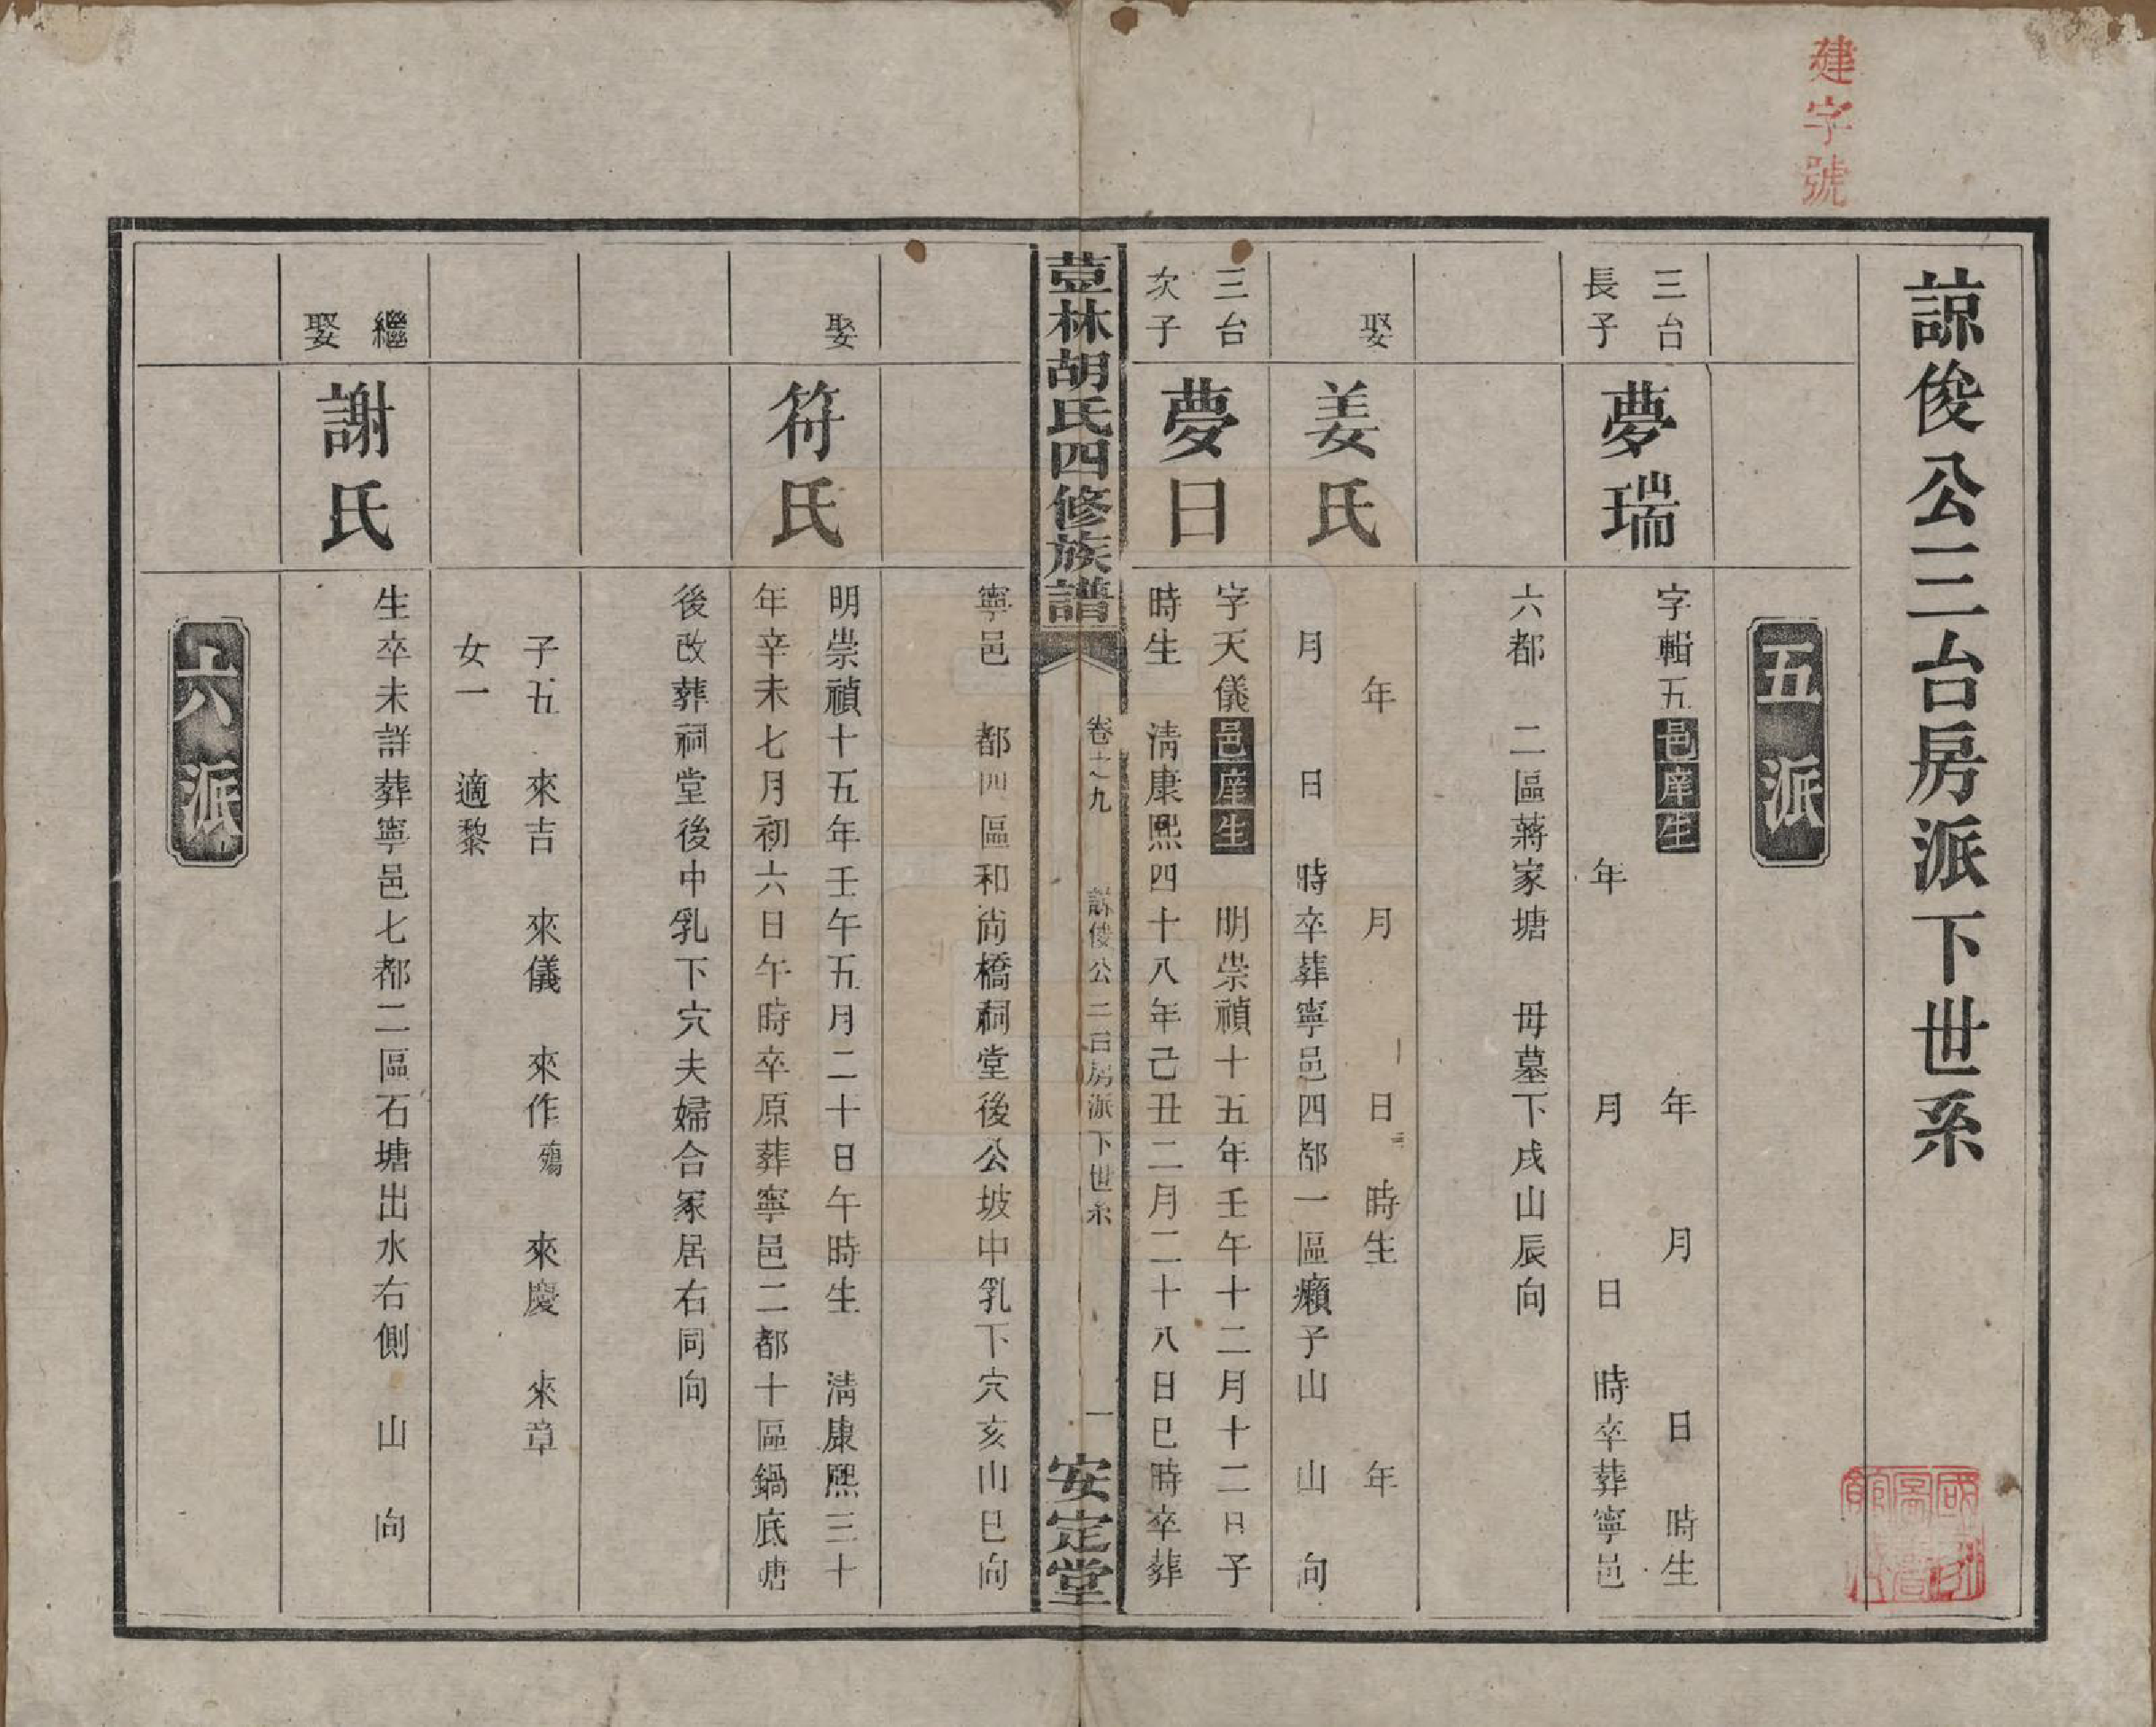 建字號
諒俊公三台房派下世系
五派
三台
長子
夢瑞
字輯五邑庠生 年 月 日 時生
年 月 日 時卒葬寧邑
六都 二區蔣家塘 毋墓下戌山辰向
娶
姜氏
年 月 日 時生 年
月 日 時卒葬寧邑四都一區癩子山 山 向
三台
次子
夢日
字天儀邑庠生 明崇禎十五年壬午十二月十二日子
時生 淸康熙四十八年己丑二月二十八日巳時卒葬
荳林胡氏四修族譜
卷之九
諒俊公三台房派下世系
一
安定堂
寧邑 都四區和尚橋祠堂後公坡中乳下穴亥山巳向
娶
符氏
明崇禎十五年壬午五月二十日午時生 淸康熙三十
年辛未七月初六日午時卒原葬寧邑二都十區鍋底塘
後改葬祠堂後中乳下穴夫婦合冢居右同向
子五 來吉 來儀 來作殤 來慶 來章
女一 適黎
繼
娶
謝氏
生卒未詳葬寧邑七都二區石塘出水右側 山 向
六派